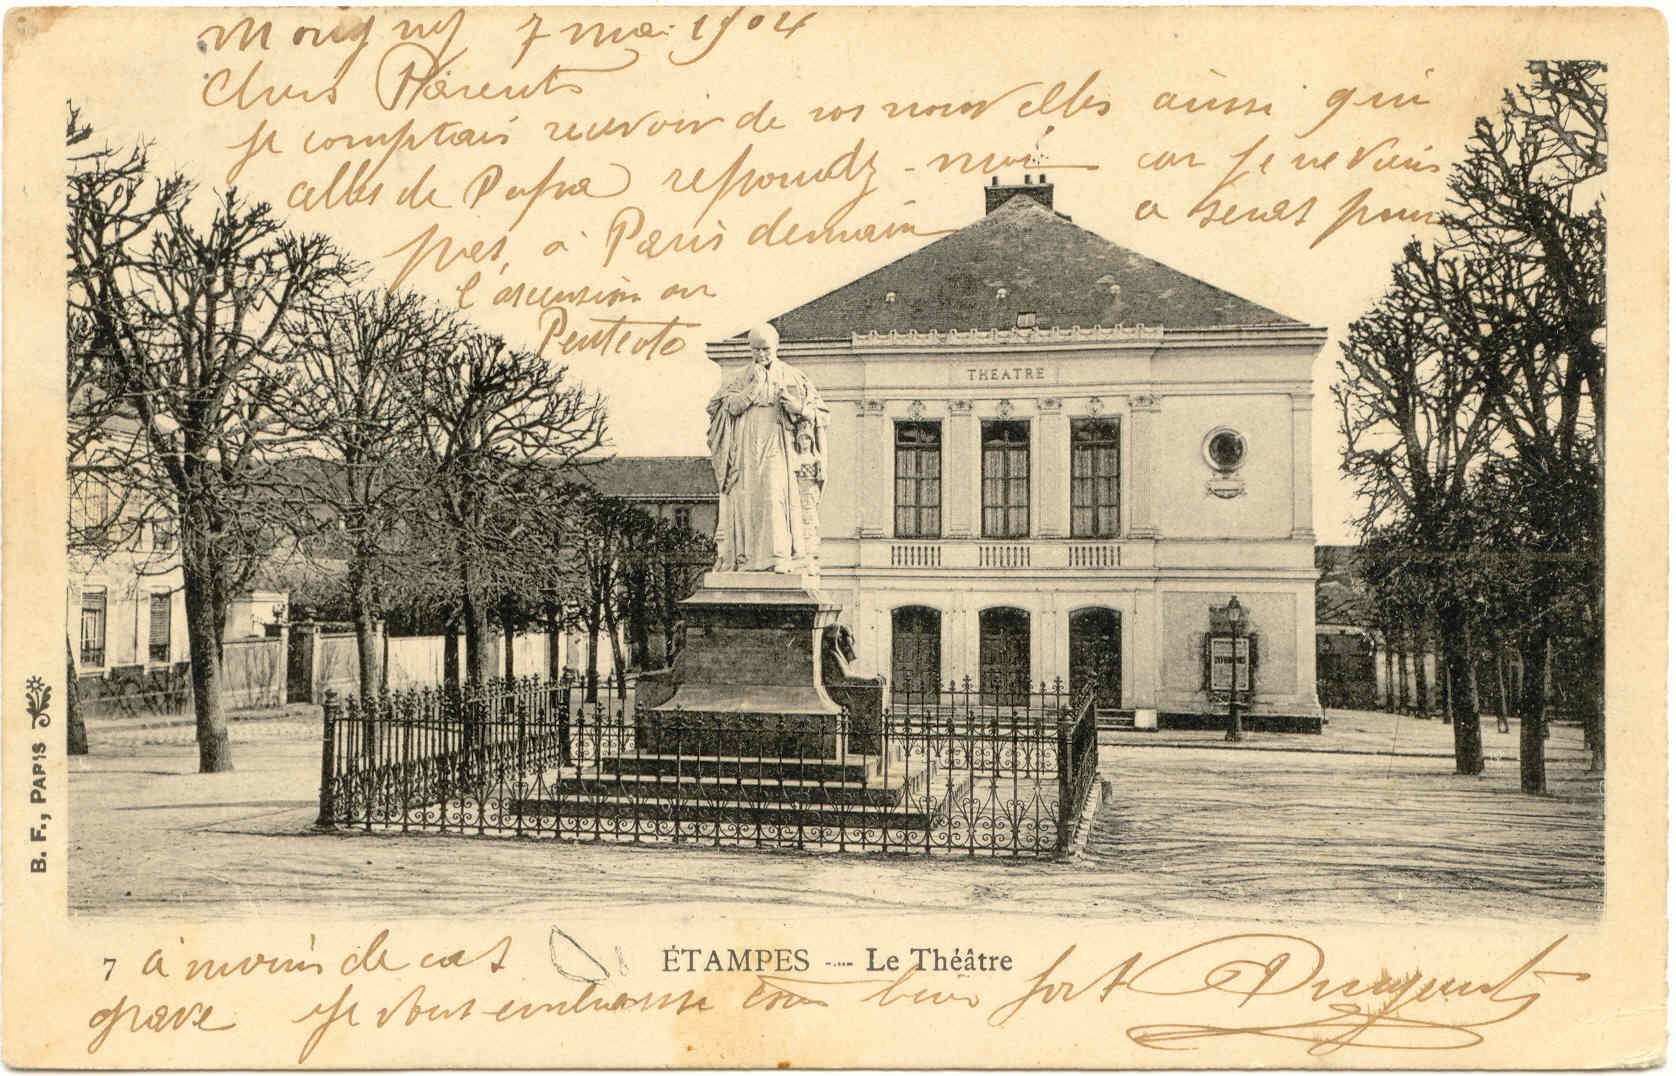 7 mai 1904
Chers Parents
Je comptais recevoir de vos nouvelles aussi qui
celles de Papa repondez-moi car je ne vais
pas, à Paris demain a serat pour
l'ascension ou
Pentecote
THEATRE
B. F., PARIS
7 à moins de cas ÉTAMPES --- Le Théâtre
grave Je vous embrasse tous bien fort